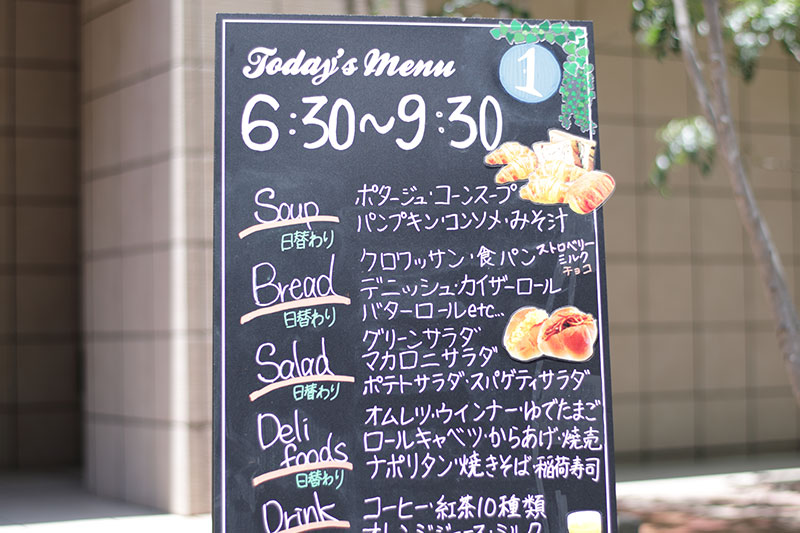 Today's Menu
1
6:30~9:30
Soup
日替わり
ポタージュ・コーンスープ
パンプキン・コンソメ・みそ汁
Bread
日替わり
クロワッサン・食パン ストロベリー ミルク チョコ
デニッシュ・カイザーロール
バターロール etc...
Salad
日替わり
グリーンサラダ
マカロニサラダ
ポテトサラダ・スパゲティサラダ
Deli foods
日替わり
オムレツ・ウインナー・ゆでたまご
ロールキャベツ・からあげ・焼売
ナポリタン・焼きそば・稲荷寿司
Drink
コーヒー・紅茶10種類
オレンジジュース・ミルク